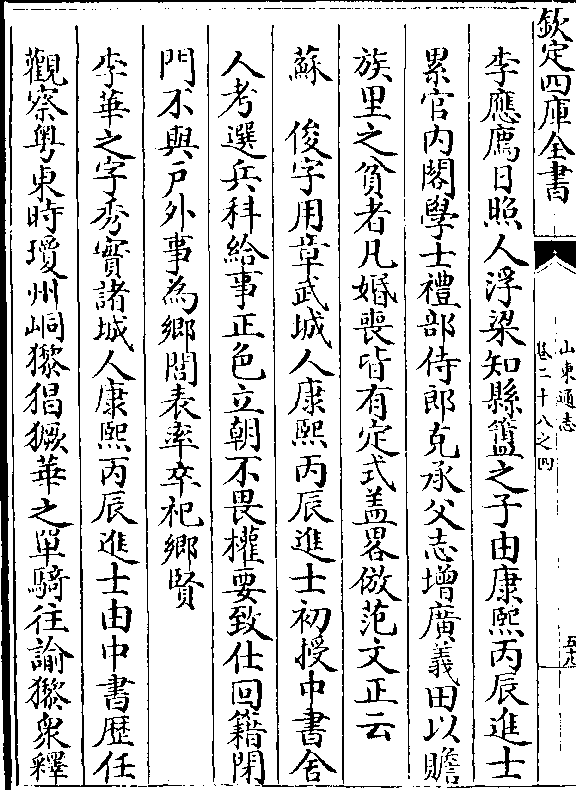 欽定四庫全書
山東通志
卷二十八之四
五十九
李應廌日照人浮梁知縣簠之子由康熙丙辰進士
累官内閣學士禮部侍郎克承父志增廣義田以贍
族里之貧者凡婚喪皆有定式盖畧倣范文正云
蘇　俊字用章武城人康熙丙辰進士初授中書舍
人考選兵科給事正色立朝不畏權要致仕回籍閉
門不與户外事為鄉閭表率卒祀鄉賢
李華之字秀實諸城人康熙丙辰進士由中書歷任
觀察粤東時瓊州峒黎猖獗華之單騎往諭黎衆釋